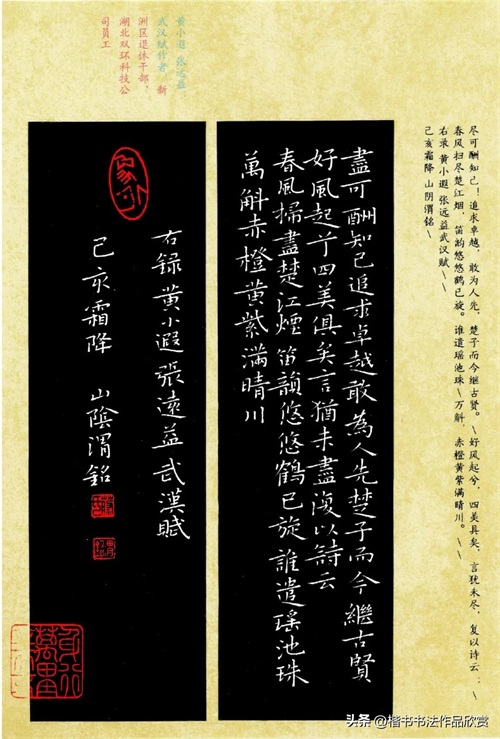 尽可酬知己！追求卓越，敢为人先，楚子而今继古贤。\好风起兮，四美具矣，言犹未尽，复以诗云：\
春风扫尽楚江烟，笛韵悠悠鹤已旋。谁遣瑶池珠\万斛，赤橙黄紫满晴川。\\
右录 黄小遐 张远益武汉赋\\
己亥霜降 山阴渭铭\
盡可酬知己追求卓越敢為人先楚子而今繼古賢
好風起兮四美俱矣言猶未盡復以詩云
春風掃盡楚江煙笛韻悠悠鶴已旋誰遣瑤池珠
萬斛赤橙黄紫滿晴川
黄小遐 张远益：
武汉赋作者，新
洲区退休干部、
湖北双环科技公
司员工
右録黄小遐張遠益武漢賦
己亥霜降 山陰渭銘
头条 @楷书书法作品欣赏